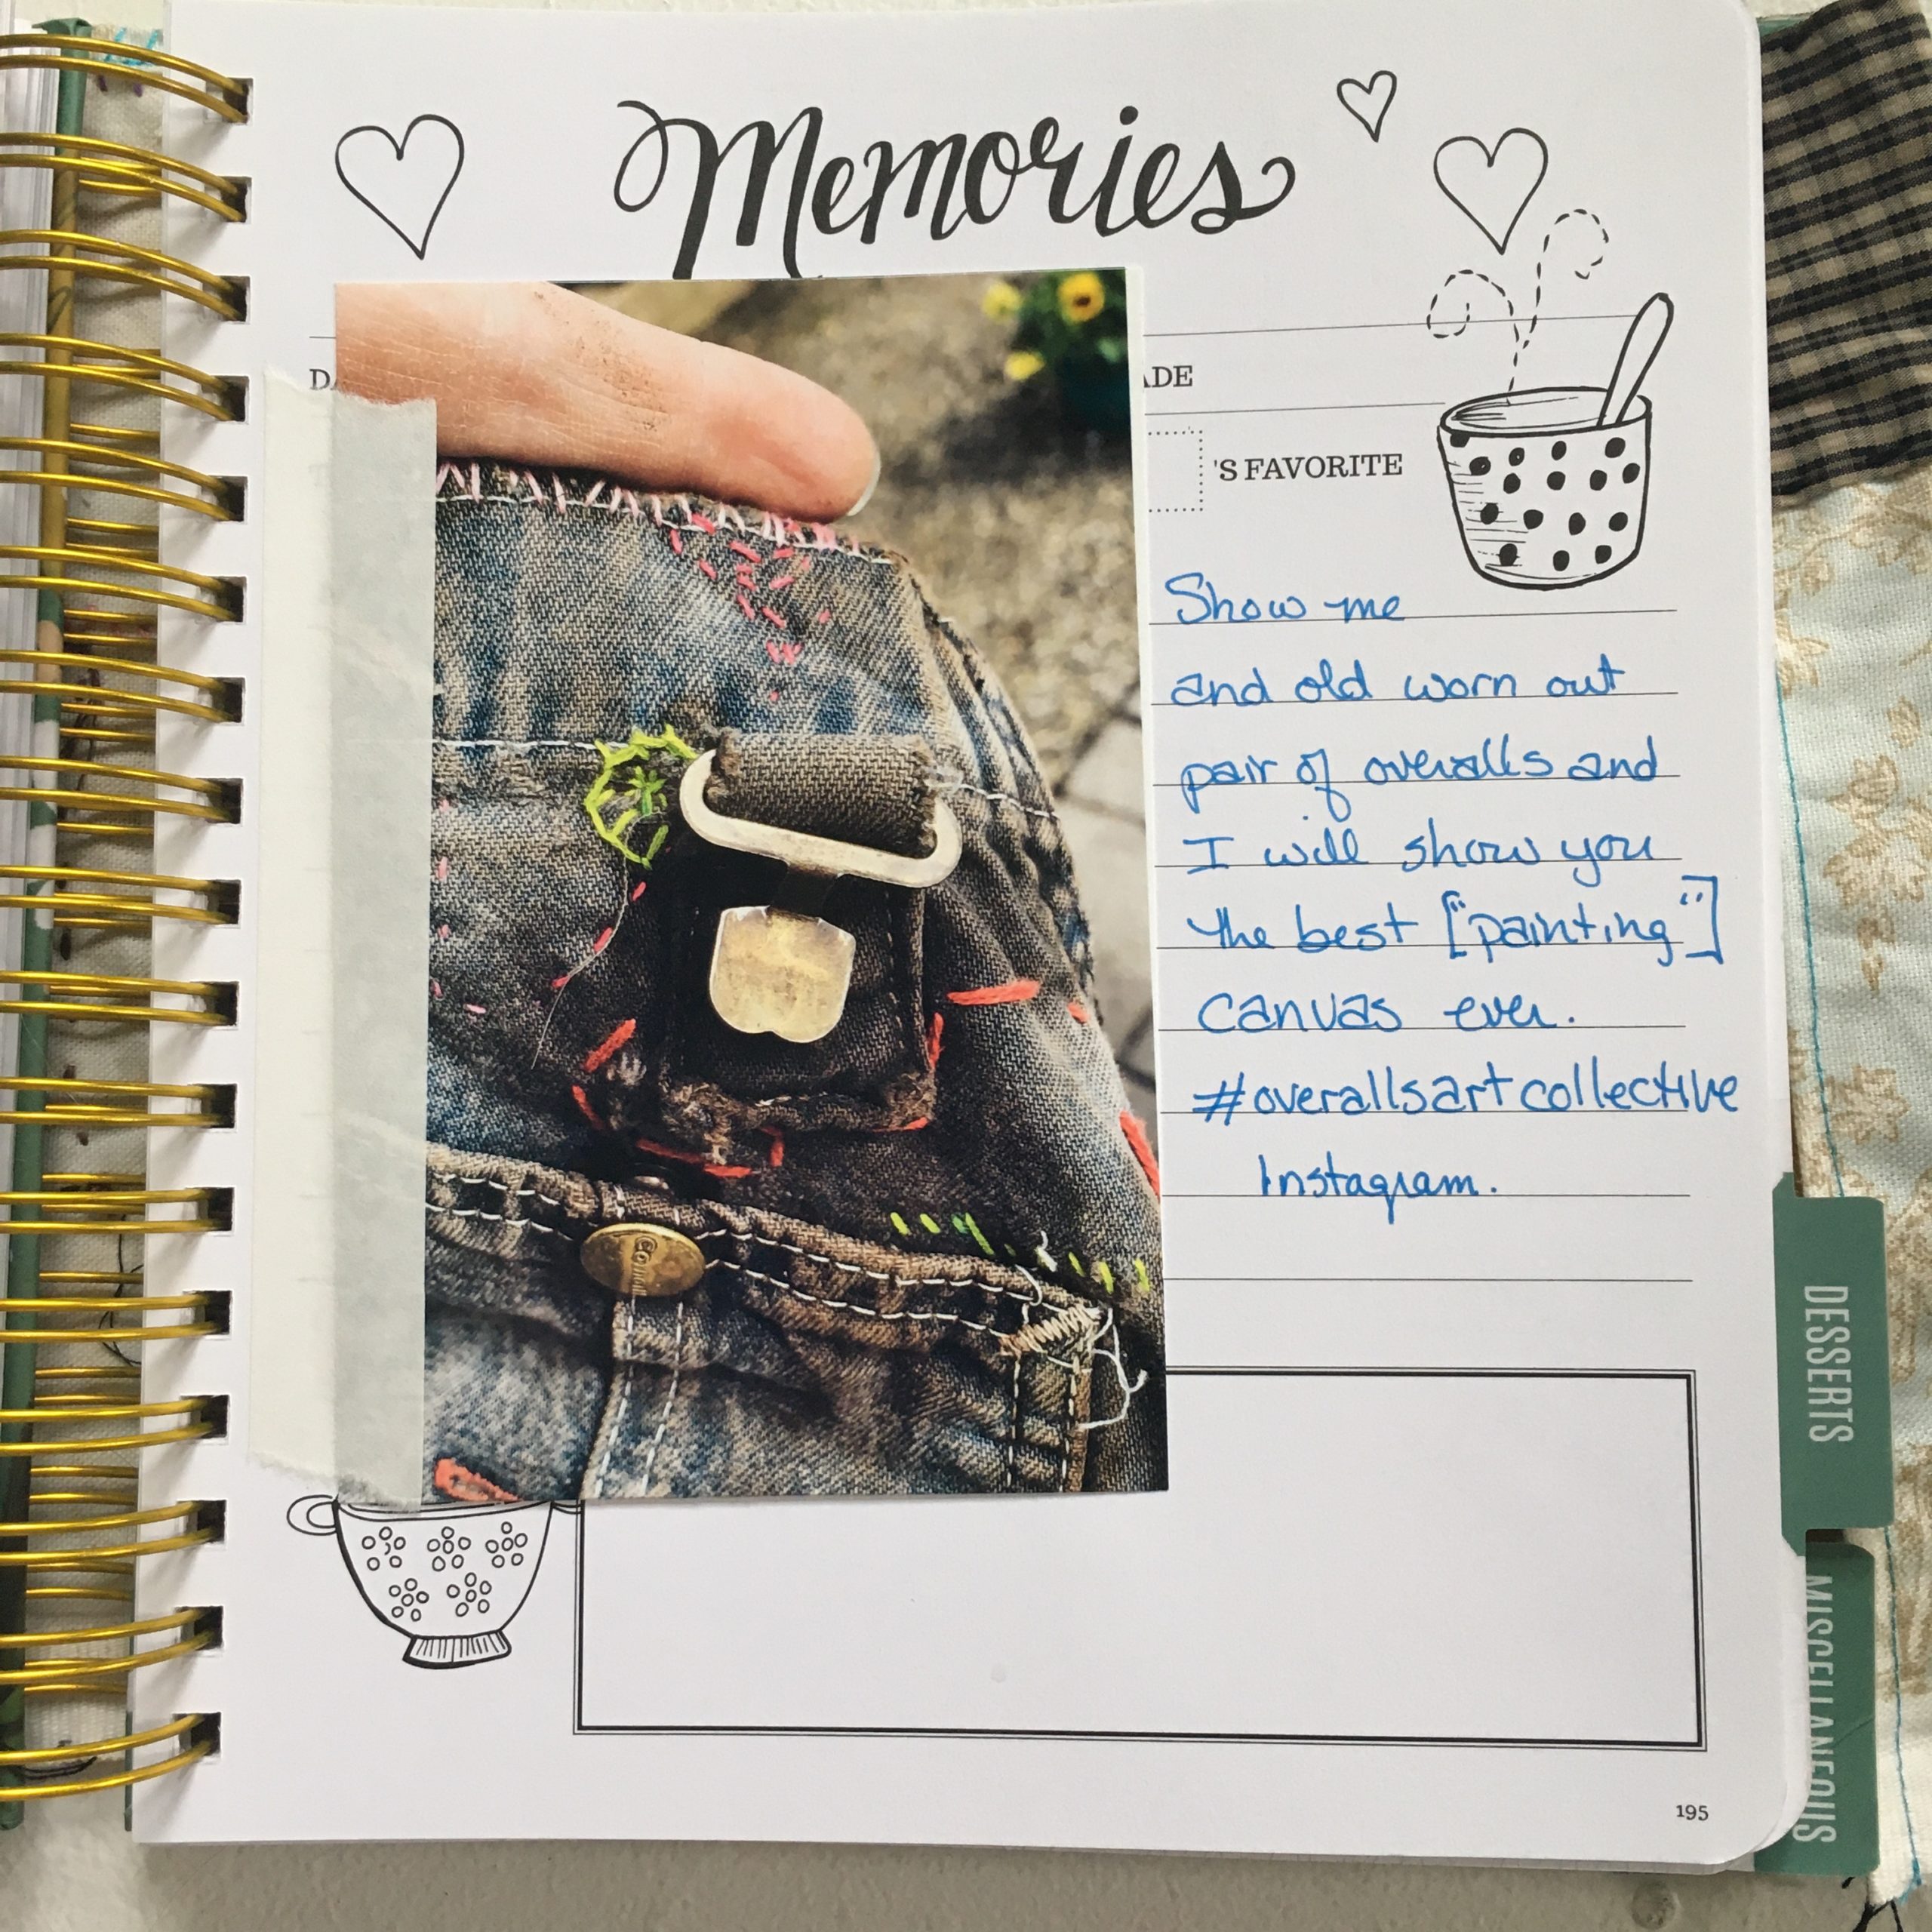 Memories
DA
ADE
'S FAVORITE
Show me
and old worn out
pair of overalls and
I will show you
the best ["painting"]
canvas ever.
#overallsartcollective
Instagram.
DESSERTS
MISCELLANEOUS
195